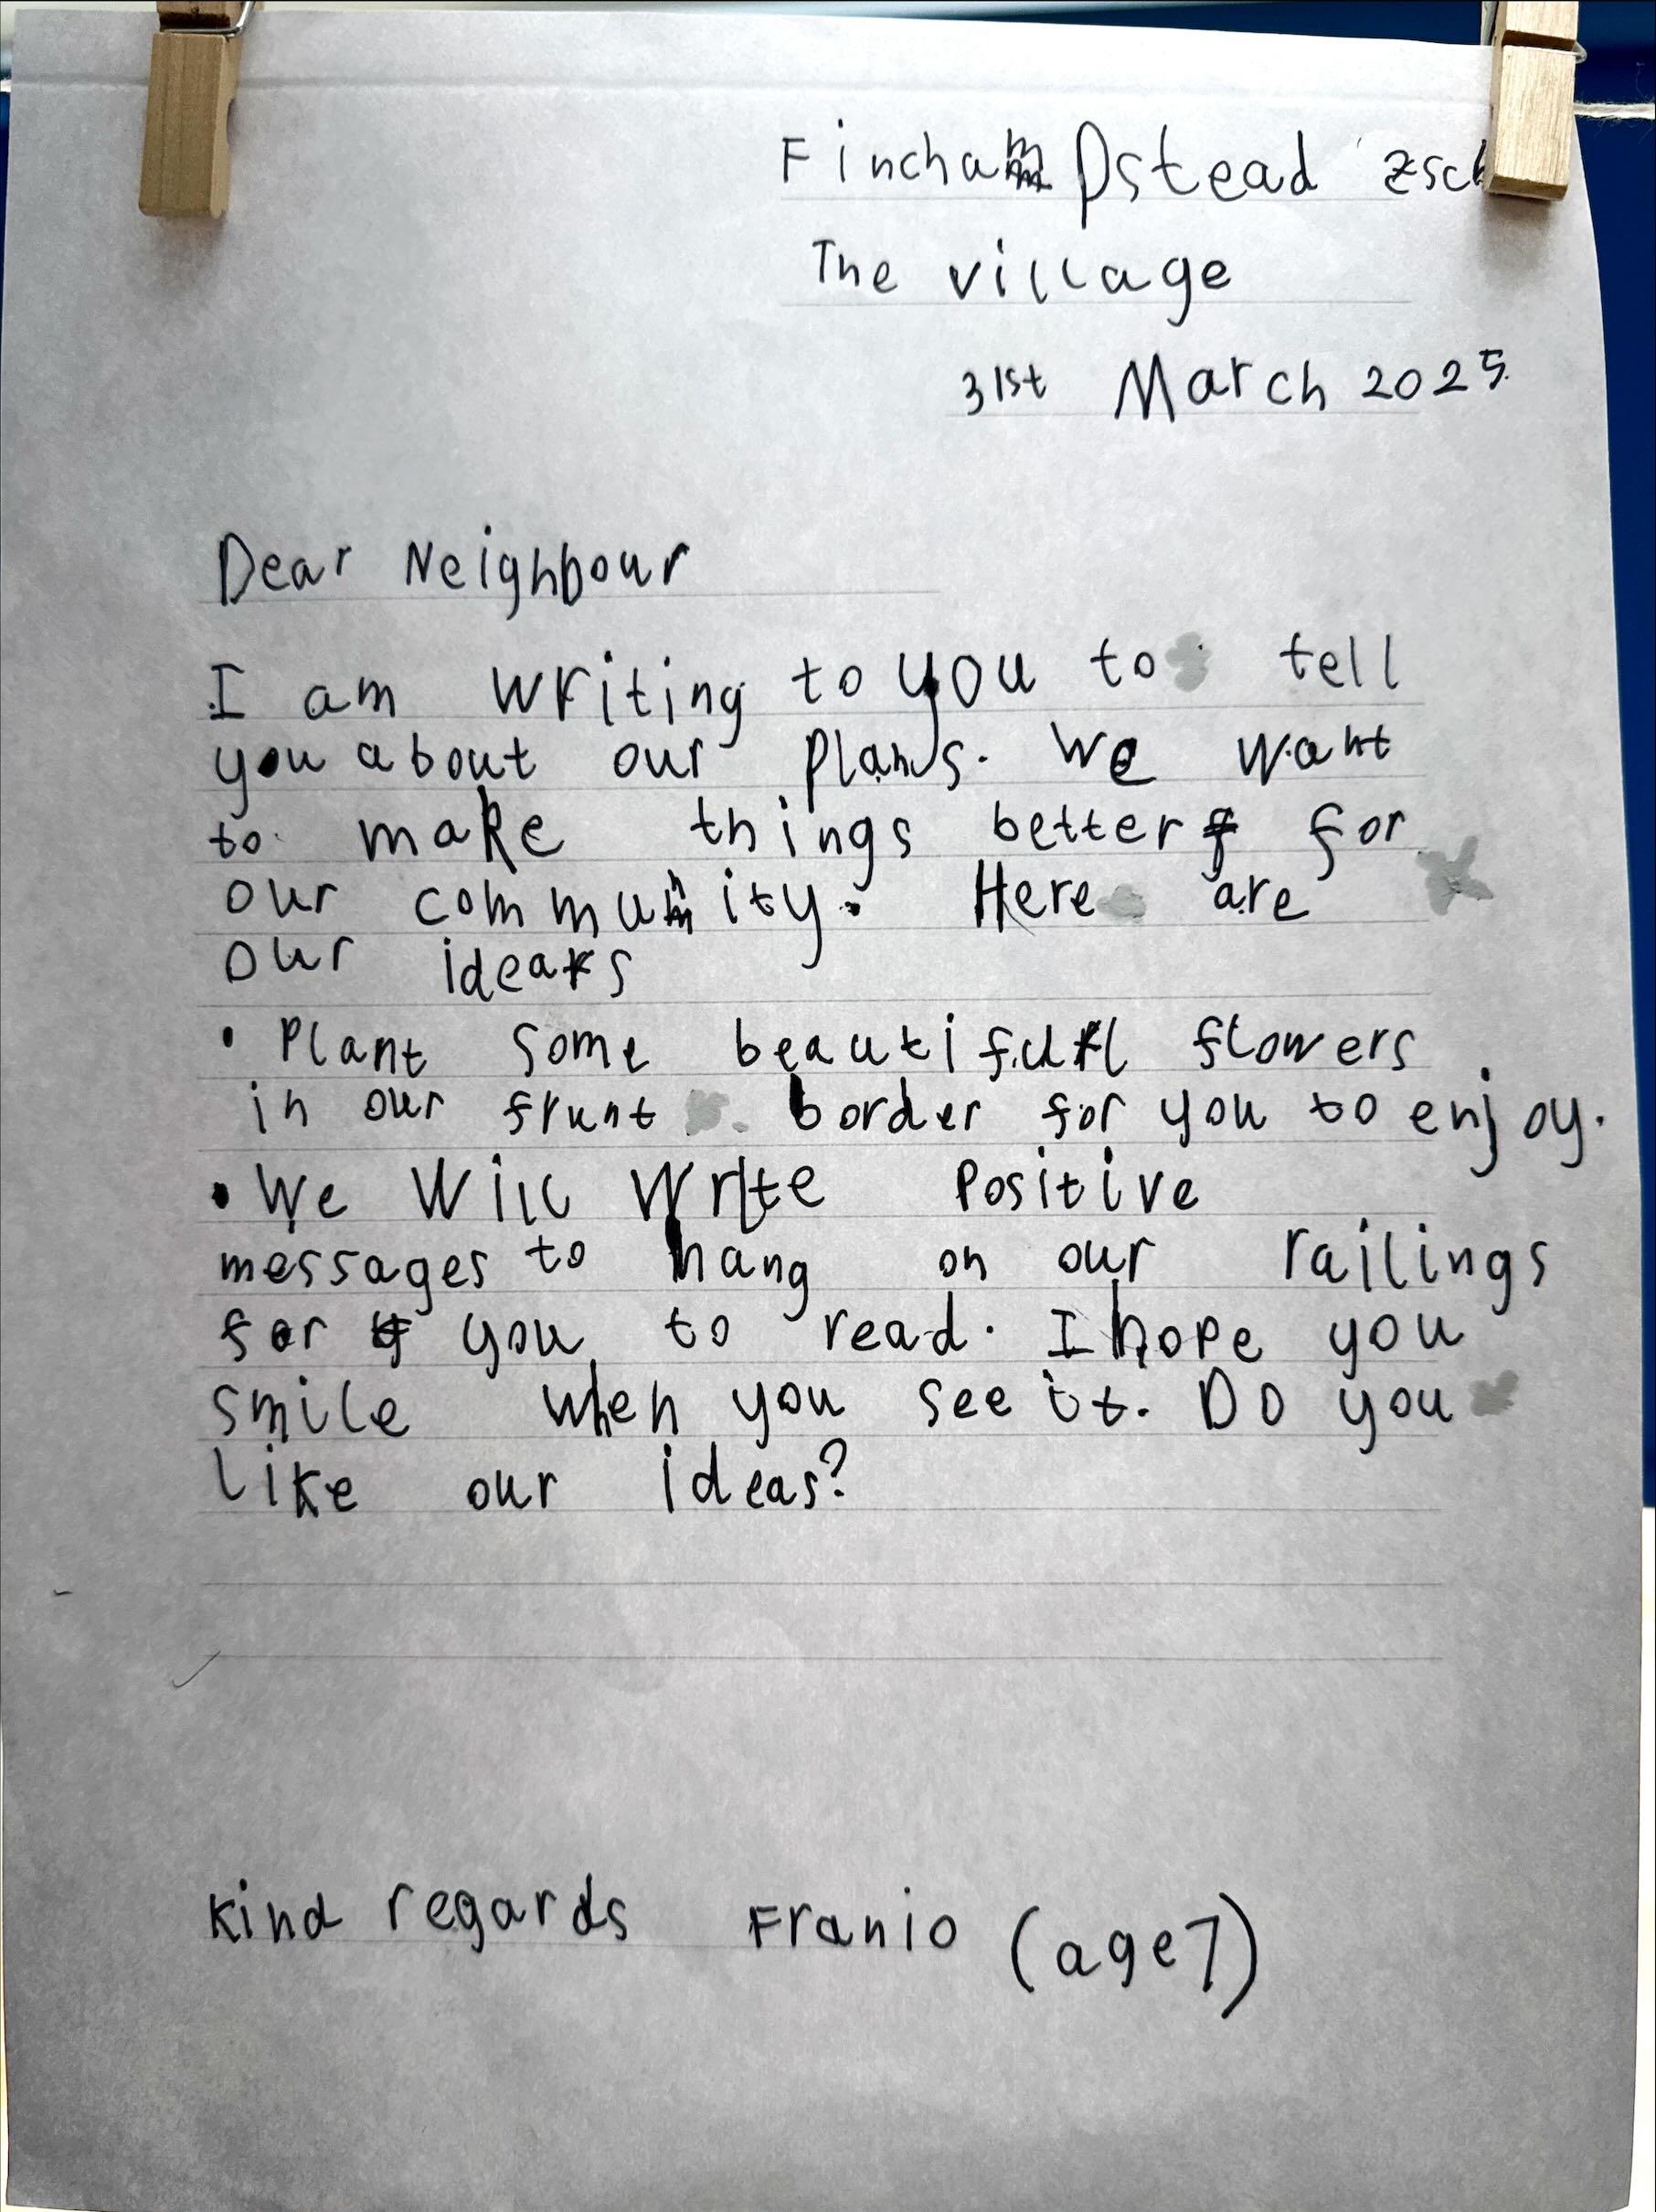 Finchampstead
The village
31st March 2025
Dear Neighbour
I am writing to you to tell
you about our plans. We want
to make things better for
our community. Here are
our ideas
• Plant some beautiful flowers
in our frunt border for you to enjoy.
• We will write positive
messages to hang on our railings
for you to read. I hope you
smile when you see it. Do you
like our ideas?
Kind regards Franio (age 7)